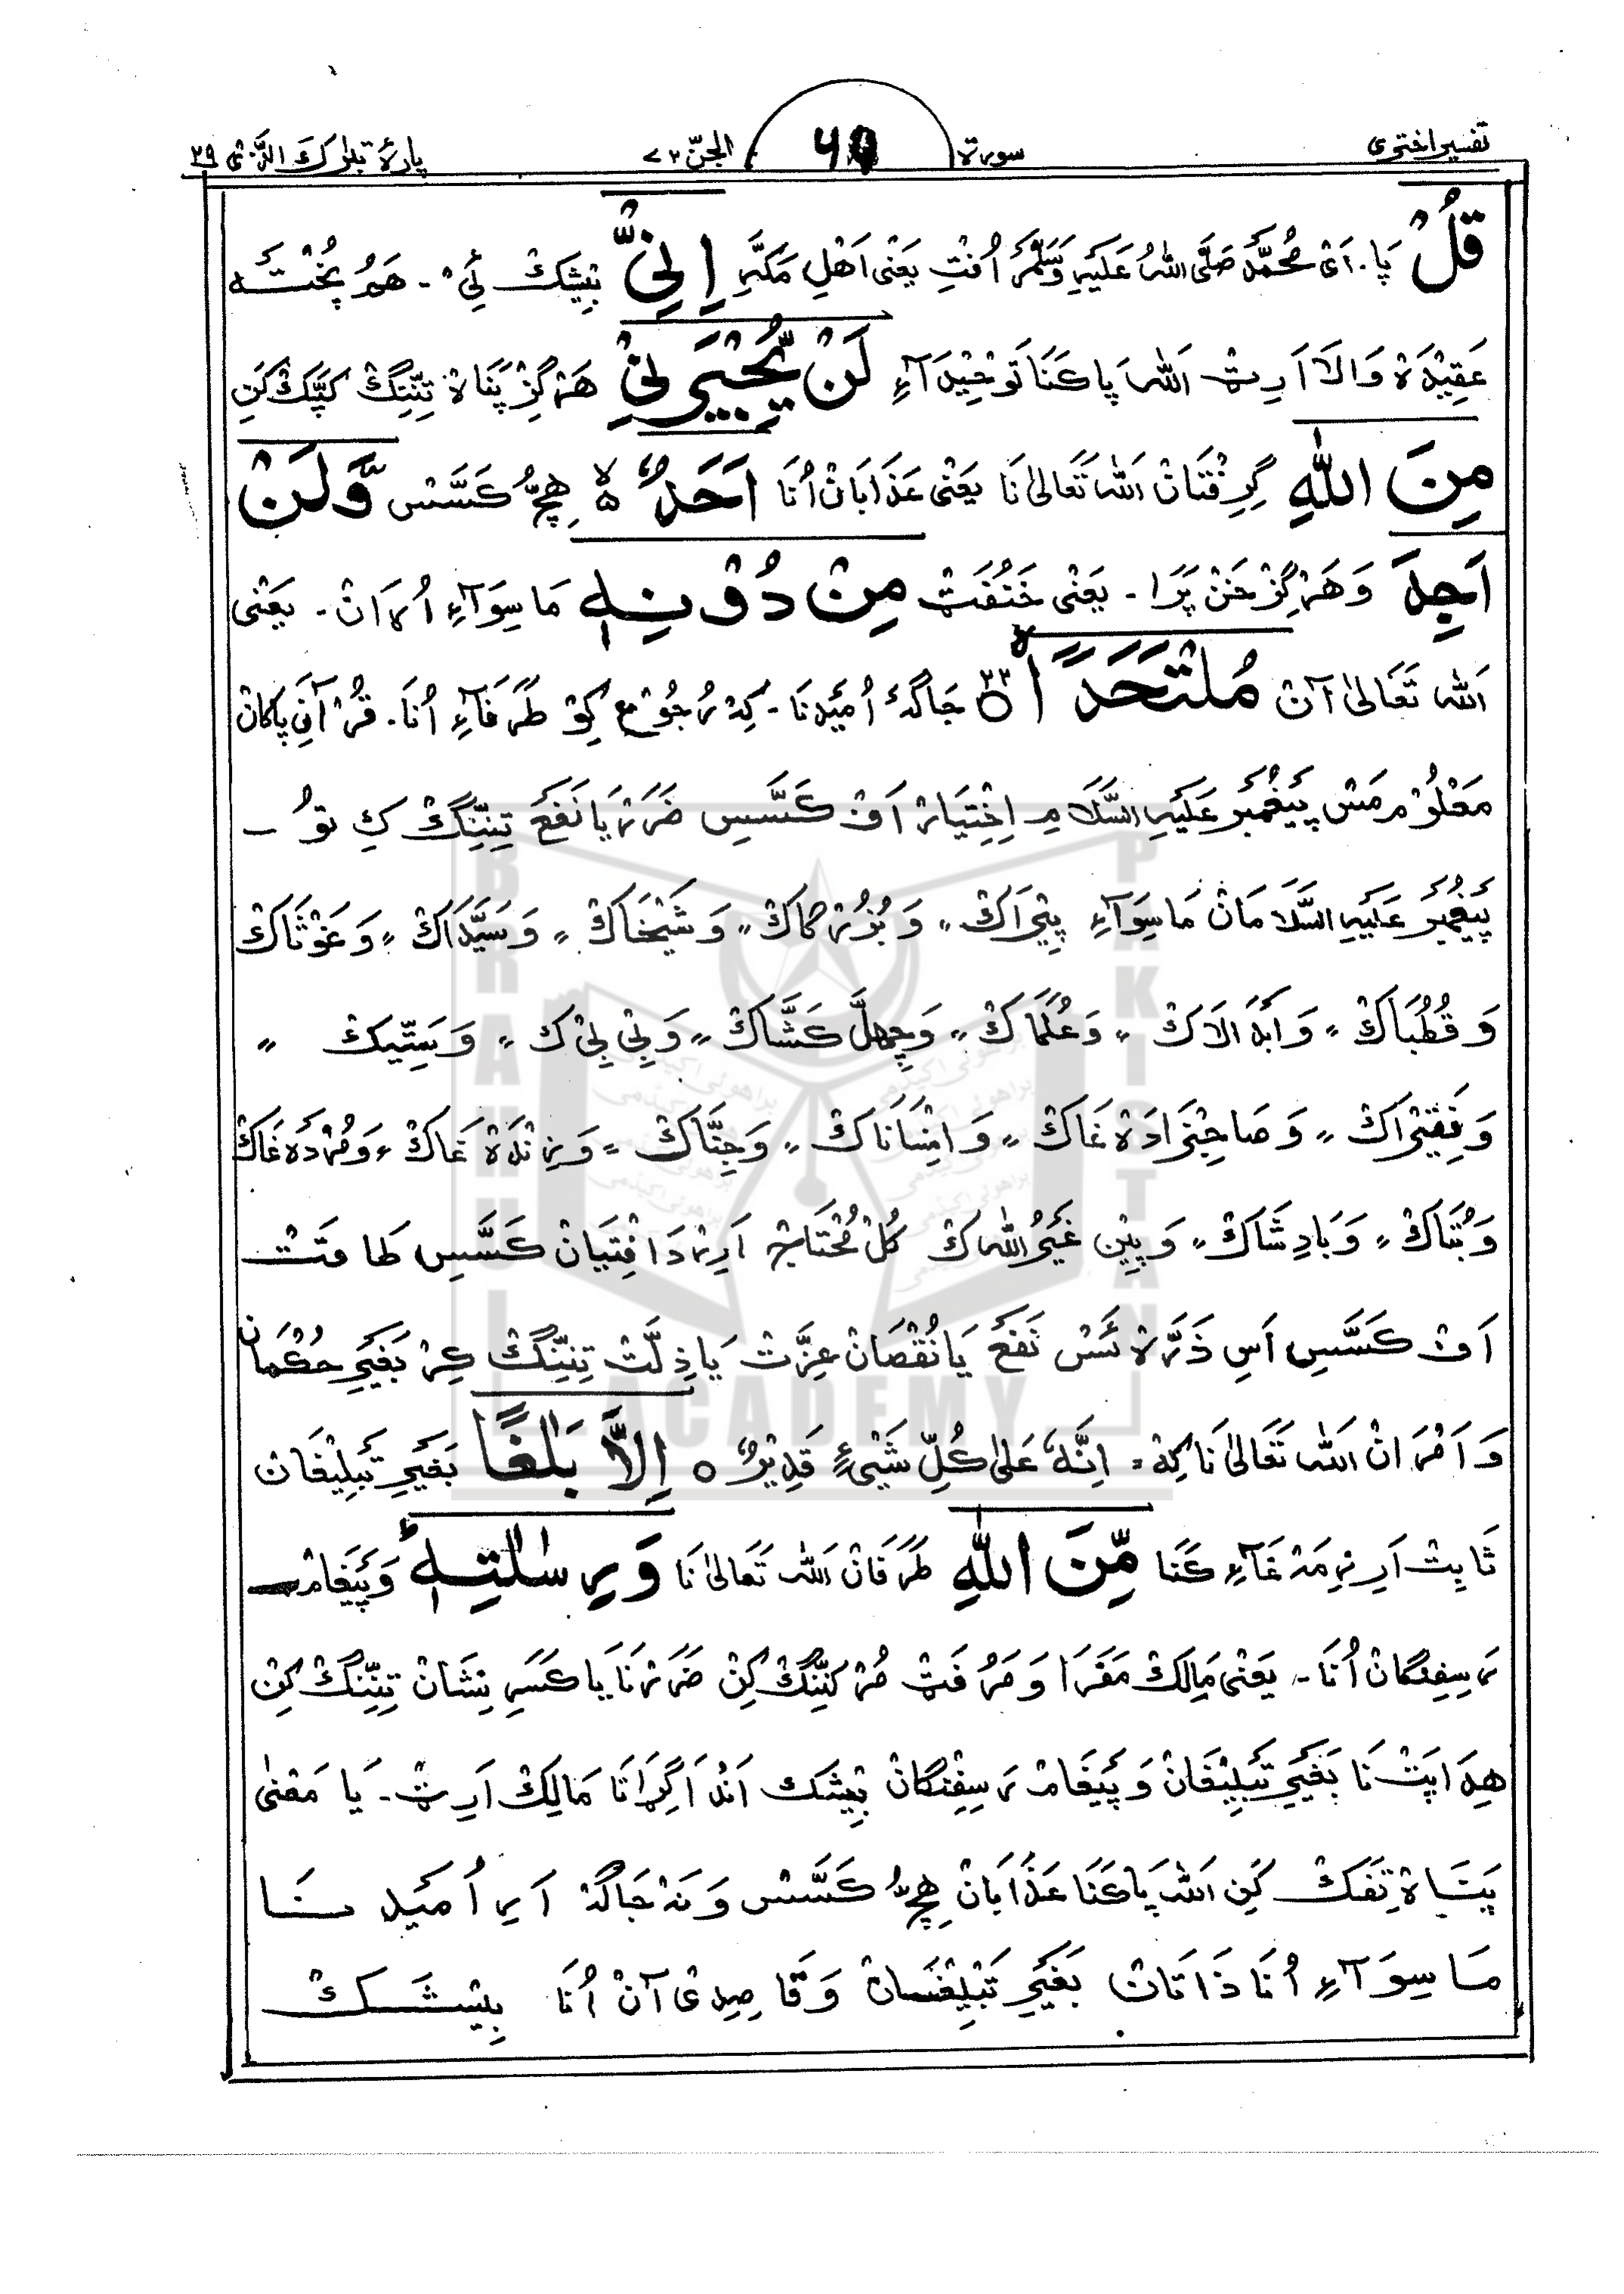 تفسیر اختری سورة الجنّ ۷۲ پارۀ تبٰرک الّذی ۲۹
قُلْ پَا. اَیْ مُحَمَّدْ صَلَّی اللّٰهُ عَلَیْهِ وَسَلَّمَ اُفْتِ یَعْنٰی اَهْلِ مَکَّهِ اِنِّیْ بِیْشَکْ اَیْ - هَمْ پُخْتَه
عَقِیْدَہْ وَالَا اَرِیْٹ اَللّٰه پَا کَنَا تَوْحِیْدَآءِ لَنْ یُّجِیْرَنِیْ هَرْگِزْ پَنَاہْ تِنِّنْگْ کَپَّکْ کَنِ
مِنَ اللّٰهِ گِرِفْتَانْ اَللّٰه تَعَالٰی نَا یَعْنٰی عَذَابَانْ اُنَا اَحَدٌ ۵ هِچُّ کَسَّسْ وَّلَنْ
اَجِدَ وَهَرْگِزْ خَنْ پَرَا - یَعْنٰی خَنُفَٹ مِنْ دُوْنِهٖ مَاسِوَآءِ اُرَانْ - یَعْنٰی
اَللّٰه تَعَالٰی آنْ مُلْتَحَدًا ۲۲ جَاگَهْ اُمَیْدنَا - کِهْ رُجُوْع کِوْ طَرَفَآءِ اُنَا - قُرْآنِ پَاکَانْ
مَعْلُوْم مَسْ پَیْغَمْبَرْ عَلَیْهِ السَّلَامِ اِخْتِیَارْ اَفْ کَسَّسِ ضَرَرْ یَا نَفَعْ تِنِّنْگْ کِ تُوْ -
پَیْغَمْبَرْ عَلَیْهِ السَّلَامَانْ مَاسِوَآءِ پِیْرَاکْ، وَبُزُرْگَاکْ، وَشَیْخَاکْ، وَسَیِّدَاکْ، وَغَوْثَاکْ
وَقُطُبَاکْ، وَاَبْدَالَاکْ، وَعُلَمَاکْ، وَچِهِلَّ کَشَّاکْ، وَبِیْ بِیْ کْ، وَسَتِّیْکْ،
وَفَقِیْرَاکْ، وَصَاحِبْزَادَہْ غَاکْ، وَاِنْسَانَاکْ، وَجِنَّاکْ، وَزِنْدَہْ غَاکْ، وَمُرْدَہْ غَاکْ
وَبُتَاکْ، وَبَادِشَاکْ، وَپِیْن غَیْرُ اللّٰه کْ کُلْ مُحْتَاج اَرِیْر دَافْتِیَانْ کَسَّسِ طَاقَتْ
اَفْ کَسَّسِ اَسِ ذَرَّہْ ئَسْ نَفَعْ یَا نُقْصَانْ عِزَّتْ یَا ذِلَّتْ تِنِّنْگْ کِرْ بَغَیْرِ حُکْمَانْ
وَاَمْرَانْ اَللّٰه تَعَالٰی نَا کِهْ = اِنَّهٗ عَلٰی کُلِّ شَیْئٍ قَدِیْرٌ ٥ اِلَّا بَلٰغًا بَغَیْرِ تَبْلِیْغَانْ
ثَابِتْ اَرِ ذِمَهْ غَآءِ کَنَا مِّنَ اللّٰهِ طَرَفَانْ اَللّٰه تَعَالٰی نَا وَرِسٰلٰتِهٖ ؕ وَپَیْغَام
رَسِفِنْگَانْ اُنَا - یَعْنٰی مَالِکْ مَفَرَا وَمَرُفَٹ مُرْ کِنِّنْگْ کِنْ ضَرَرْنَا یَا کَسَرِ نِشَانْ تِنِّنْگْ کِنْ
هِدَایَتْ نَا بَغَیْرِ تَبْلِیْغَانْ وَپَیْغَامْ رَسِفِنْگَانْ بِیْشَکْ اَنْدَا گِرَاتَا مَالِکْ اَرِیْٹ - یَا مَعْنٰی
پَنَاہْ تِفَکْ کَنِ اَللّٰه پَا کَنَا عَذَابَانْ هِچُّ کَسَّسْ وَنَهْ جَاگَهْ اَرِ اُمَیْد نَا
مَاسِوَآءِ اُنَا ذَاتَانْ بَغَیْرِ تَبْلِیْغَانْ وَقَاصِدِیْ آنْ اُنَا بِیْشَکْ
BRAHUI ACADEMY PAKISTAN